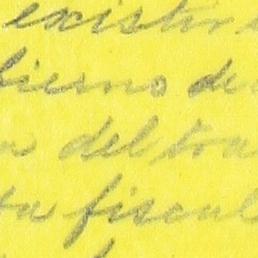 existir
bierno de
del tra
ta fiscal